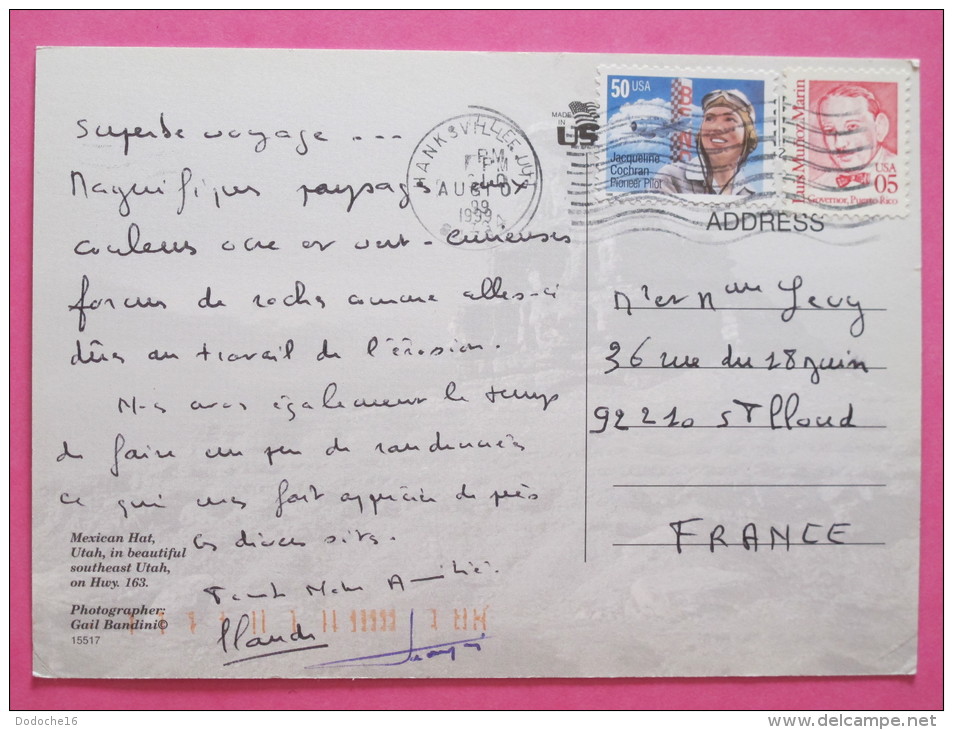 superbe voyage ...
Magnifiques paysages aux
couleurs ocre et vert - curieuses
formes de roches comme celles-ci
dûes au travail de l'érosion.
Nous avons également le temps
de faire un peu de randonnées
ce qui nous fait apprécier de près
ces divers sites.
Toutes Nos Amitiés.
Claude
Mexican Hat,
Utah, in beautiful
southeast Utah,
on Hwy. 163.
Photographer:
Gail Bandini©
15517
HANKSVILLE UT
PM
AUG
1999
MADE
IN
US
50 USA
Jacqueline
Cochran
Pioneer Pilot
Luis Muñoz Marin
USA
05
Governor, Puerto Rico
ADDRESS
Mr et Mme Levy
36 rue du 18 Juin
92210 St Cloud
FRANCE
Dodoche16
www.delcampe.net